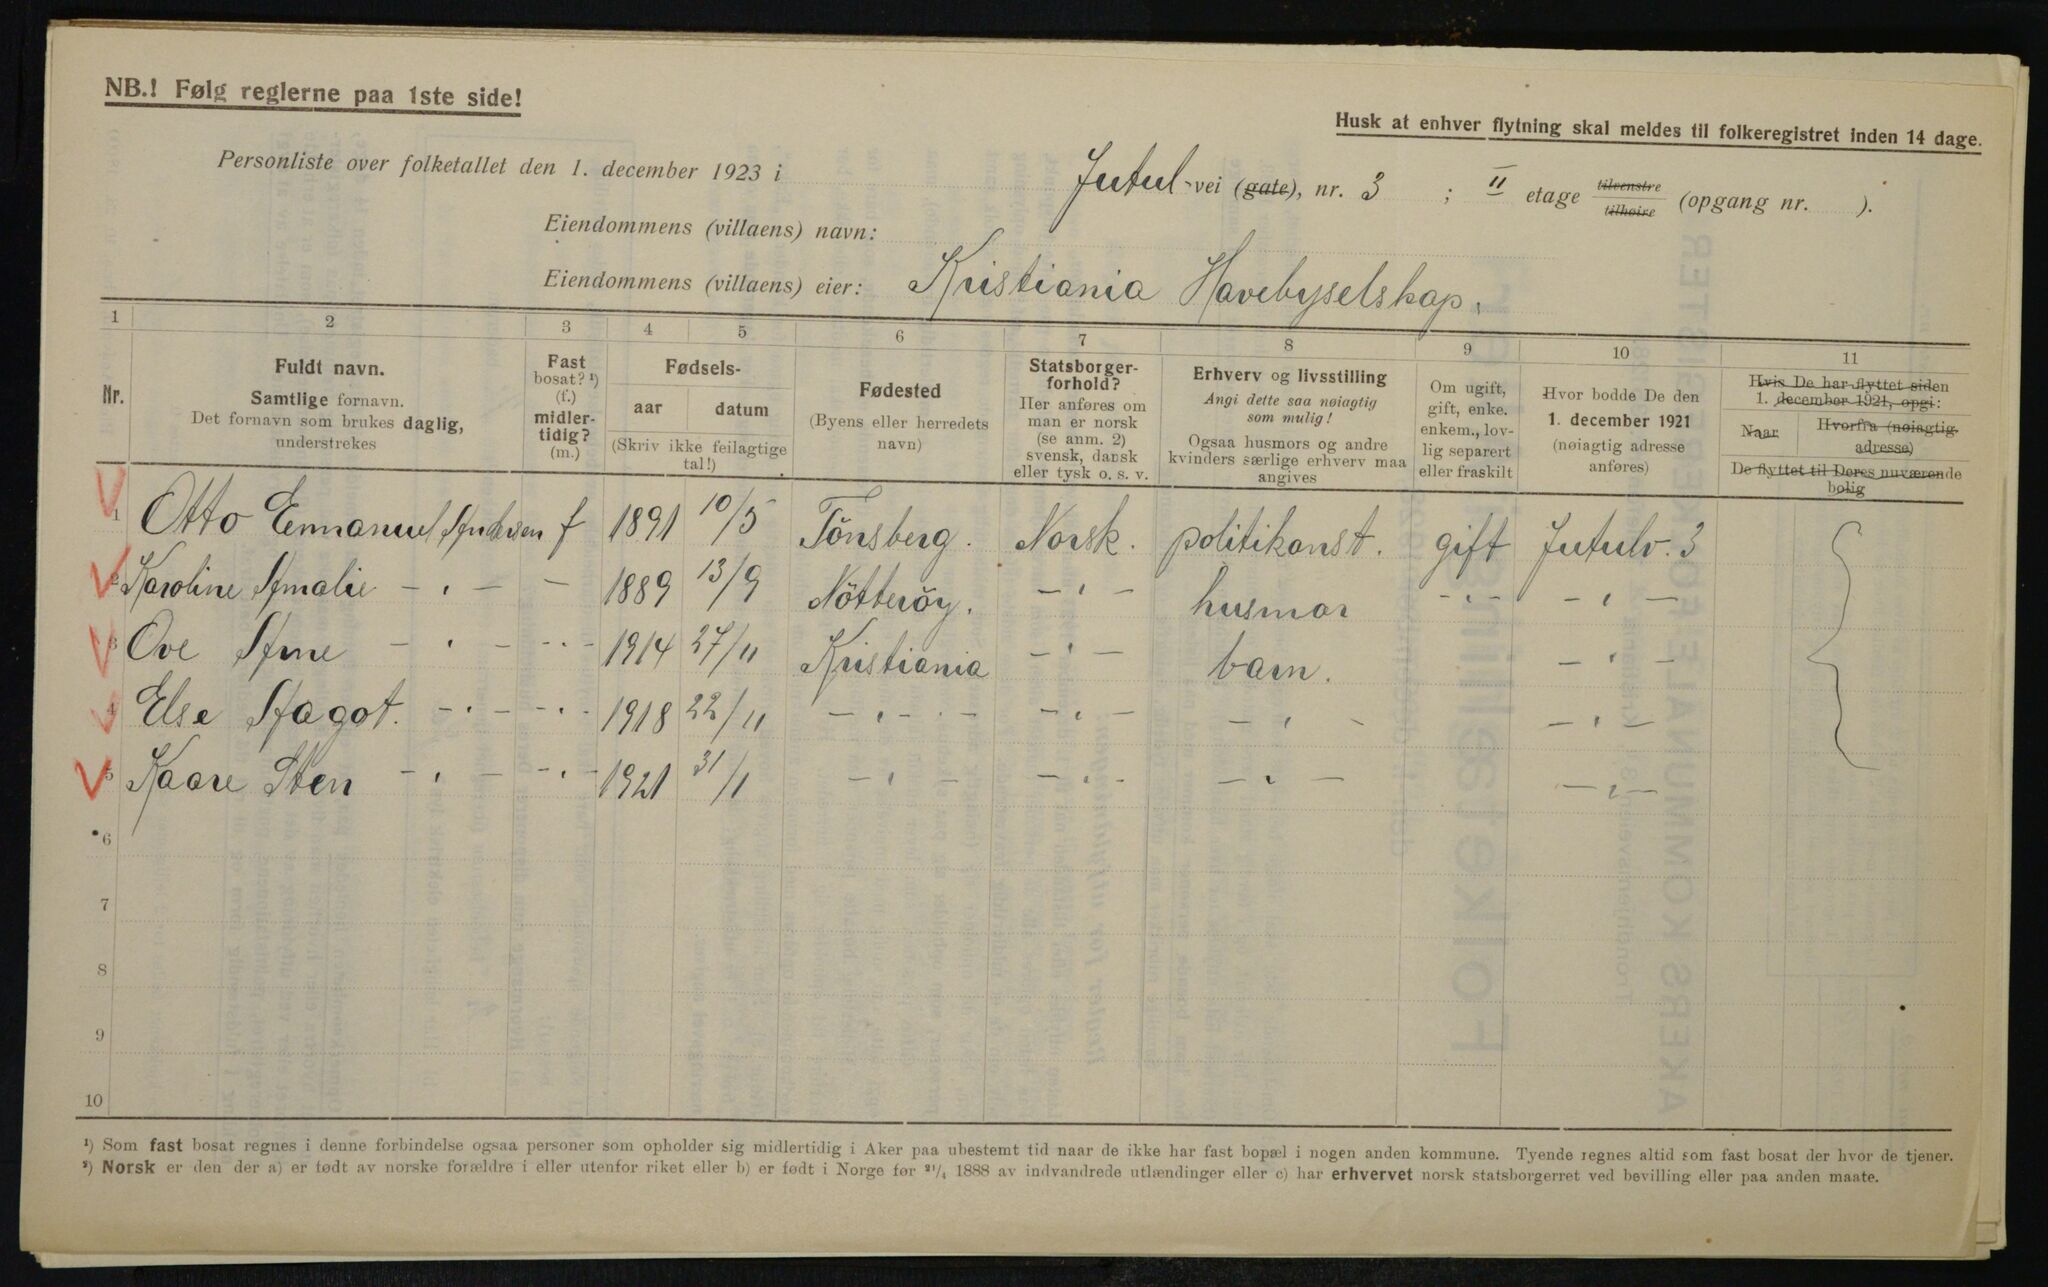 NB.! Følg reglerne paa 1ste side!
Husk at enhver flytning skal meldes til folkeregistret inden 14 dage.
Personliste over folketallet den 1. december 1923 i Jutul-vei (gate), nr. 3 ; II etage tilvenstre tilhøire (opgang nr. ).
Eiendommens (villaens) navn:
Eiendommens (villaens) eier: Kristiania Havebyselskap.
1 2 3 4 5 6 7 8 9 10 11
Nr.
Fuldt navn.
Samtlige fornavn.
Det fornavn som brukes daglig,
understrekes
Fast
bosat? ¹)
(f.)
midler-
tidig?
(m.)
Fødsels-
aar datum
(Skriv ikke feilagtige
tal!)
Fødested
(Byens eller herredets
navn)
Statsborger-
forhold?
Her anføres om
man er norsk
(se anm. 2)
svensk, dansk
eller tysk o. s. v.
Erhverv og livsstilling
Angi dette saa nøiagtig
som mulig!
Ogsaa husmors og andre
kvinders særlige erhverv maa
angives
Om ugift,
gift, enke.
enkem., lov-
lig separert
eller fraskilt
Hvor bodde De den
1. december 1921
(nøiagtig adresse
anføres)
Hvis De har flyttet siden
1. december 1921, opgi:
Naar Hvorfra (nøiagtig
adresse)
De flyttet til Deres nuværende
bolig
1 Otto Emmanuel Andersen f 1891 10/5 Tönsberg. Norsk. politikonst. gift Jutulv. 3
2 Karoline Amalie - " - - 1889 13/9 Nötteröy. - " - husmor - " - - " -
3 Ove Arne - " - - " - 1914 27/11 Kristiania - " - barn. - " -
4 Else Aagot. - " - - " - 1918 22/11 - " - - - " - - " - - " -
5 Kaare Sten - " - - " - 1921 31/1 - " - - " - - " - - " -
6
7
8
9
10
¹) Som fast bosat regnes i denne forbindelse ogsaa personer som opholder sig midlertidig i Aker paa ubestemt tid naar de ikke har fast bopæl i nogen anden kommune. Tyende regnes altid som fast bosat der hvor de tjener.
²) Norsk er den der a) er født av norske forældre i eller utenfor riket eller b) er født i Norge før 21/4 1888 av indvandrede utlændinger eller c) har erhvervet norsk statsborgerret ved bevilling eller paa anden maate.